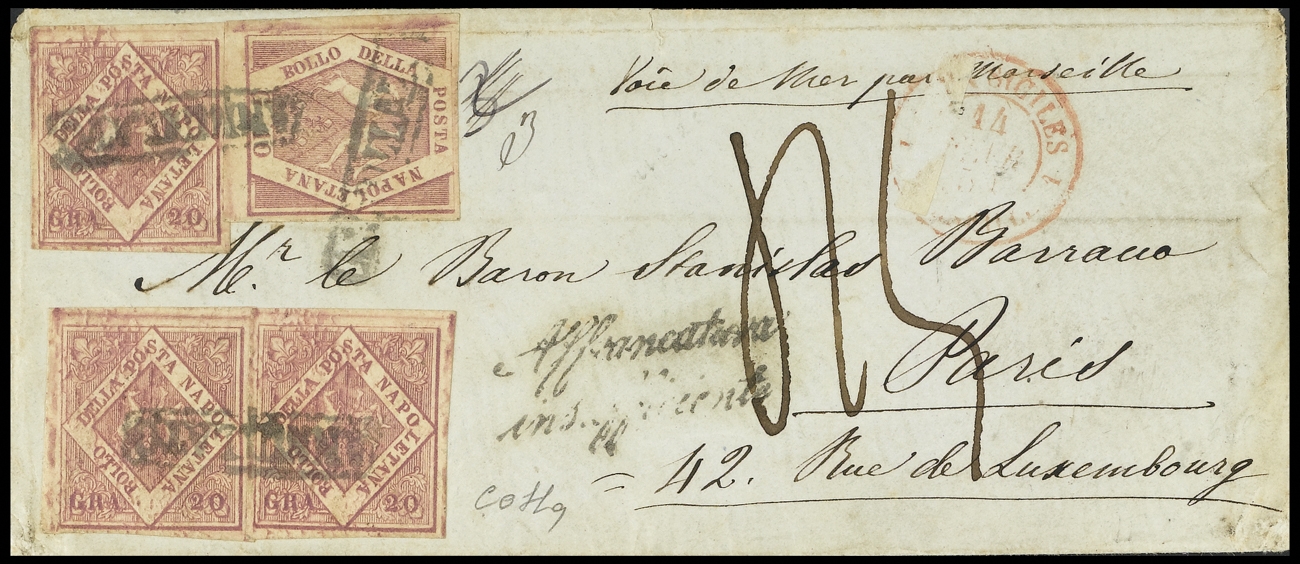 BOLLO DELLA POSTA NAPOLETANA
GRA 20
BOLLO DELLA POSTA NAPOLETANA
Voie de Mer par Marseille
14
Mr. le Baron Stanislas Barraco
Paris
= 42. Rue de Luxembourg
Affrancatura
insufficiente
BOLLO DELLA POSTA NAPOLETANA
GRA 20
BOLLO DELLA POSTA NAPOLETANA
GRA 20